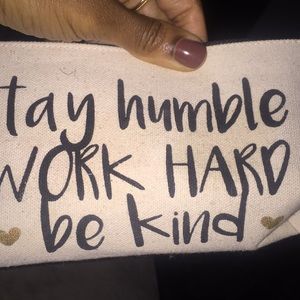 tay humble
WORK HARD
be kind